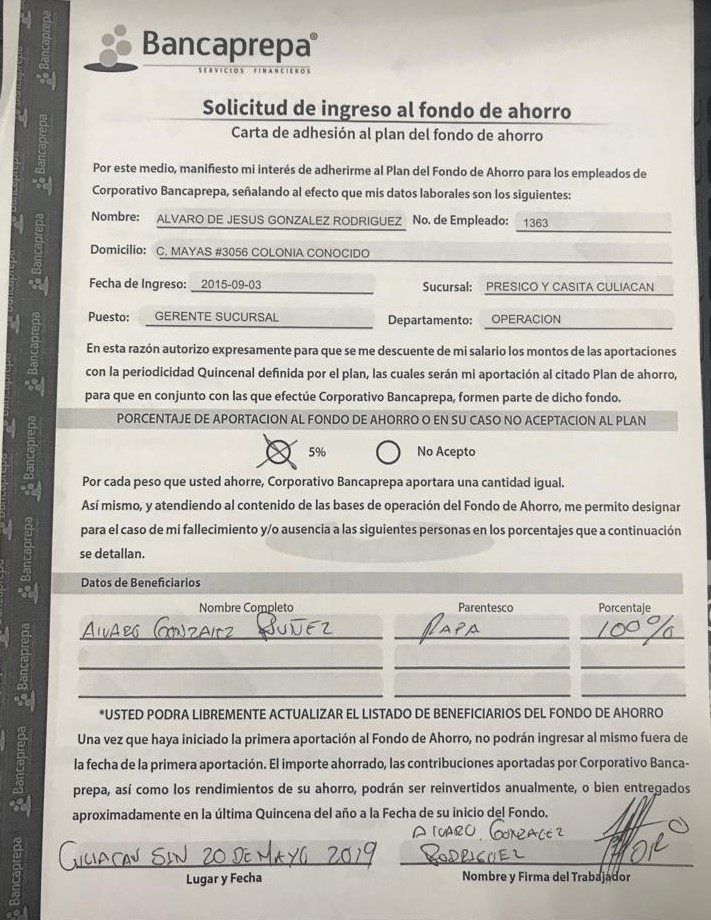 Bancaprepa®
SERVICIOS FINANCIEROS
Solicitud de ingreso al fondo de ahorro
Carta de adhesión al plan del fondo de ahorro
Por este medio, manifiesto mi interés de adherirme al Plan del Fondo de Ahorro para los empleados de
Corporativo Bancaprepa, señalando al efecto que mis datos laborales son los siguientes:
Nombre: ALVARO DE JESUS GONZALEZ RODRIGUEZ No. de Empleado: 1363
Domicilio: C. MAYAS #3056 COLONIA CONOCIDO
Fecha de Ingreso: 2015-09-03 Sucursal: PRESICO Y CASITA CULIACAN
Puesto: GERENTE SUCURSAL Departamento: OPERACION
En esta razón autorizo expresamente para que se me descuente de mi salario los montos de las aportaciones
con la periodicidad Quincenal definida por el plan, las cuales serán mi aportación al citado Plan de ahorro,
para que en conjunto con las que efectúe Corporativo Bancaprepa, formen parte de dicho fondo.
PORCENTAJE DE APORTACION AL FONDO DE AHORRO O EN SU CASO NO ACEPTACION AL PLAN
5% No Acepto
Por cada peso que usted ahorre, Corporativo Bancaprepa aportara una cantidad igual.
Así mismo, y atendiendo al contenido de las bases de operación del Fondo de Ahorro, me permito designar
para el caso de mi fallecimiento y/o ausencia a las siguientes personas en los porcentajes que a continuación
se detallan.
Datos de Beneficiarios
Nombre Completo Parentesco Porcentaje
ALVARO GONZALEZ NUÑEZ PAPA 100%
*USTED PODRA LIBREMENTE ACTUALIZAR EL LISTADO DE BENEFICIARIOS DEL FONDO DE AHORRO
Una vez que haya iniciado la primera aportación al Fondo de Ahorro, no podrán ingresar al mismo fuera de
la fecha de la primera aportación. El importe ahorrado, las contribuciones aportadas por Corporativo Banca-
prepa, así como los rendimientos de su ahorro, podrán ser reinvertidos anualmente, o bien entregados
aproximadamente en la última Quincena del año a la Fecha de su inicio del Fondo.
ALVARO GONZALEZ
CULIACAN SIN 20 DE MAYO 2019 RODRIGUEZ
Lugar y Fecha Nombre y Firma del Trabajador